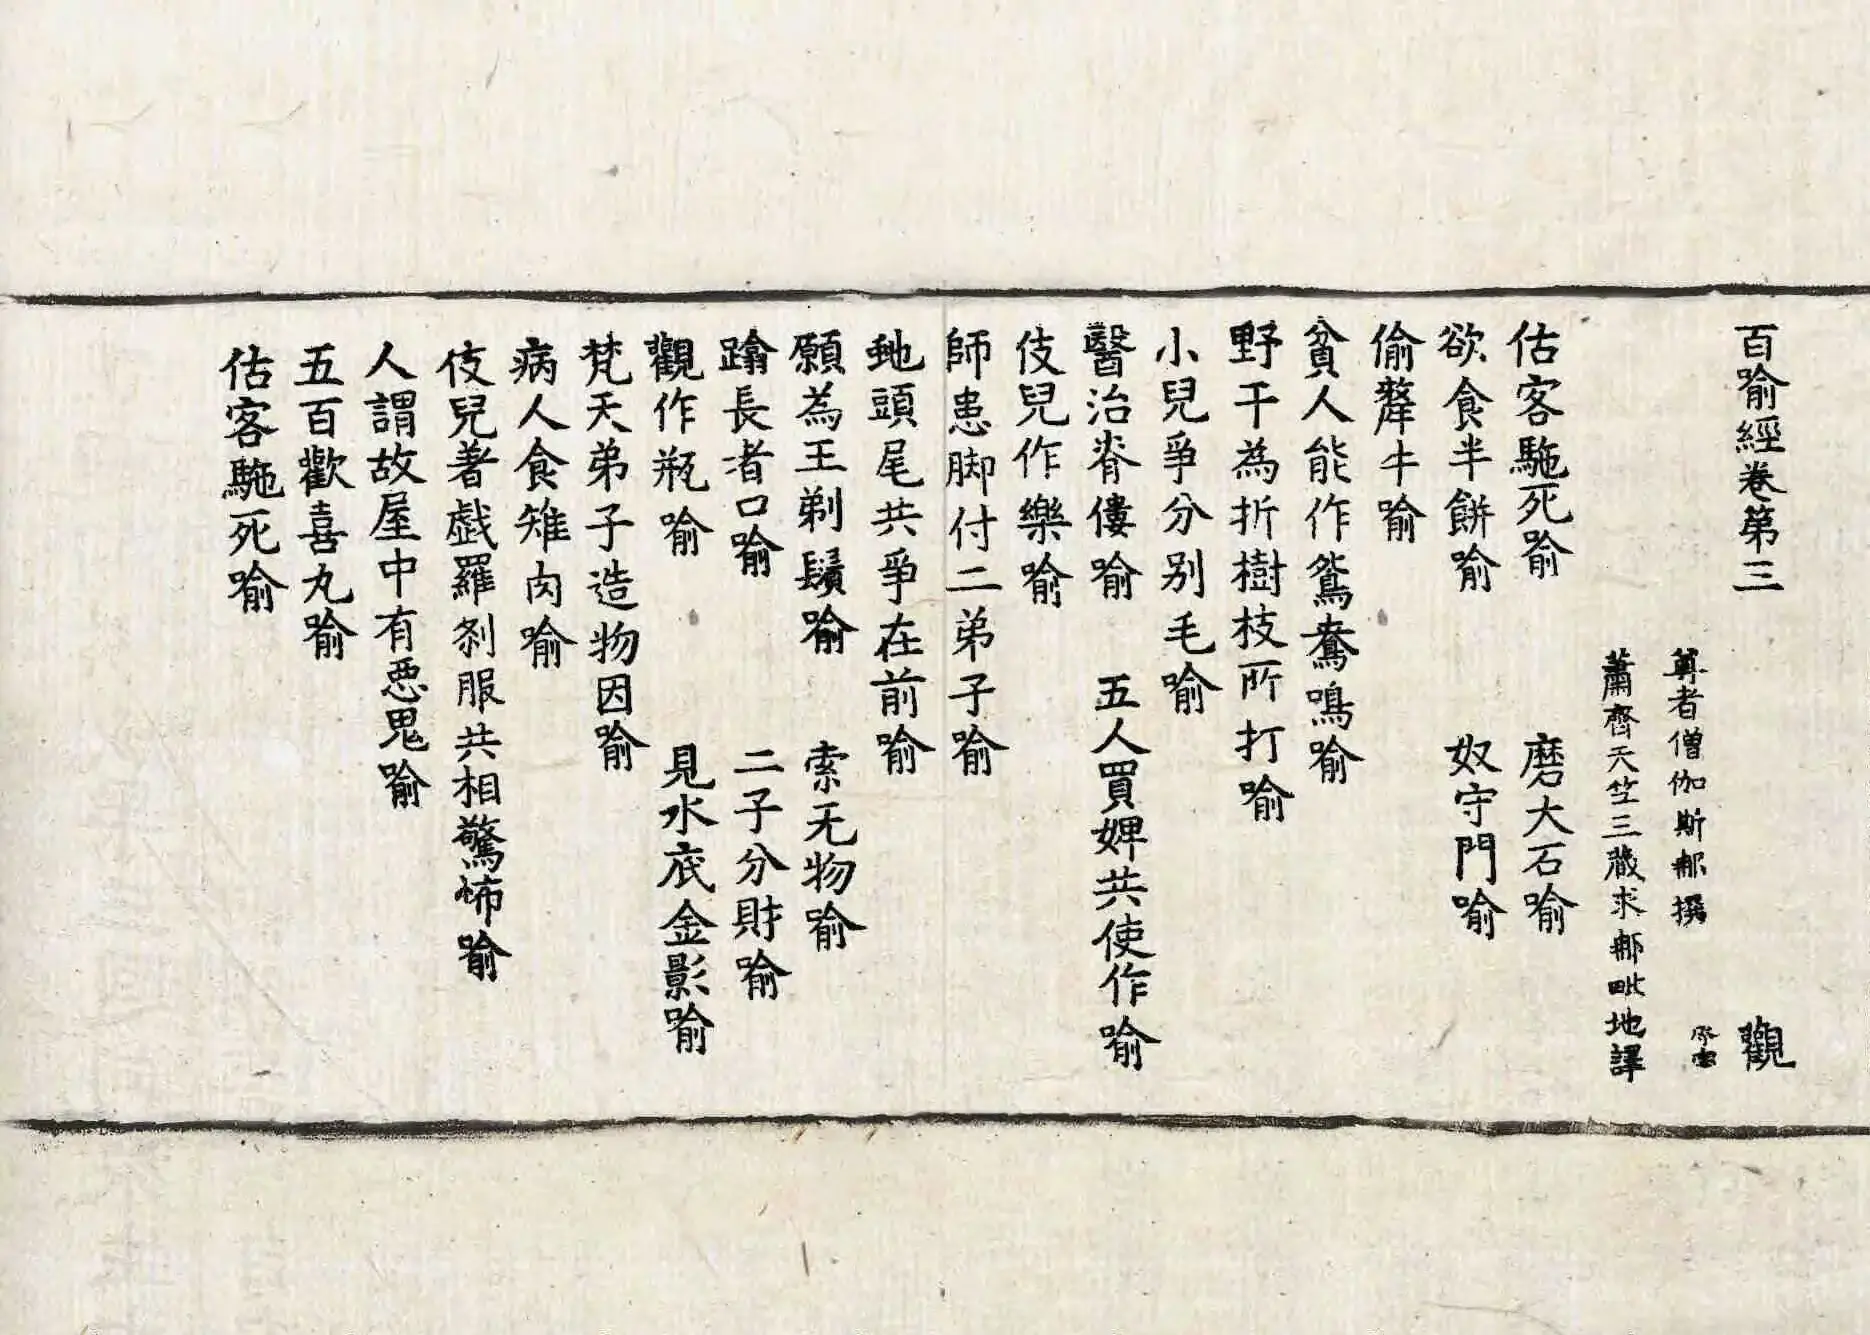 百喻經卷第三 觀
尊者僧伽斯那撰
蕭齊天竺三藏求那毗地譯
估客駞死喻 磨大石喻
欲食半餅喻 奴守門喻
偷犛牛喻
貧人能作鴛鴦鳴喻
野干為折樹枝所打喻
小兒爭分别毛喻
醫治脊僂喻 五人買婢共使作喻
伎兒作樂喻
師患脚付二弟子喻
虵頭尾共爭在前喻
願為王剃鬚喻 索无物喻
蹋長者口喻 二子分財喻
觀作瓶喻 見水底金影喻
梵天弟子造物因喻
病人食雉肉喻
伎兒著戯羅剎服共相驚怖喻
人謂故屋中有惡鬼喻
五百歡喜丸喻
估客駞死喻